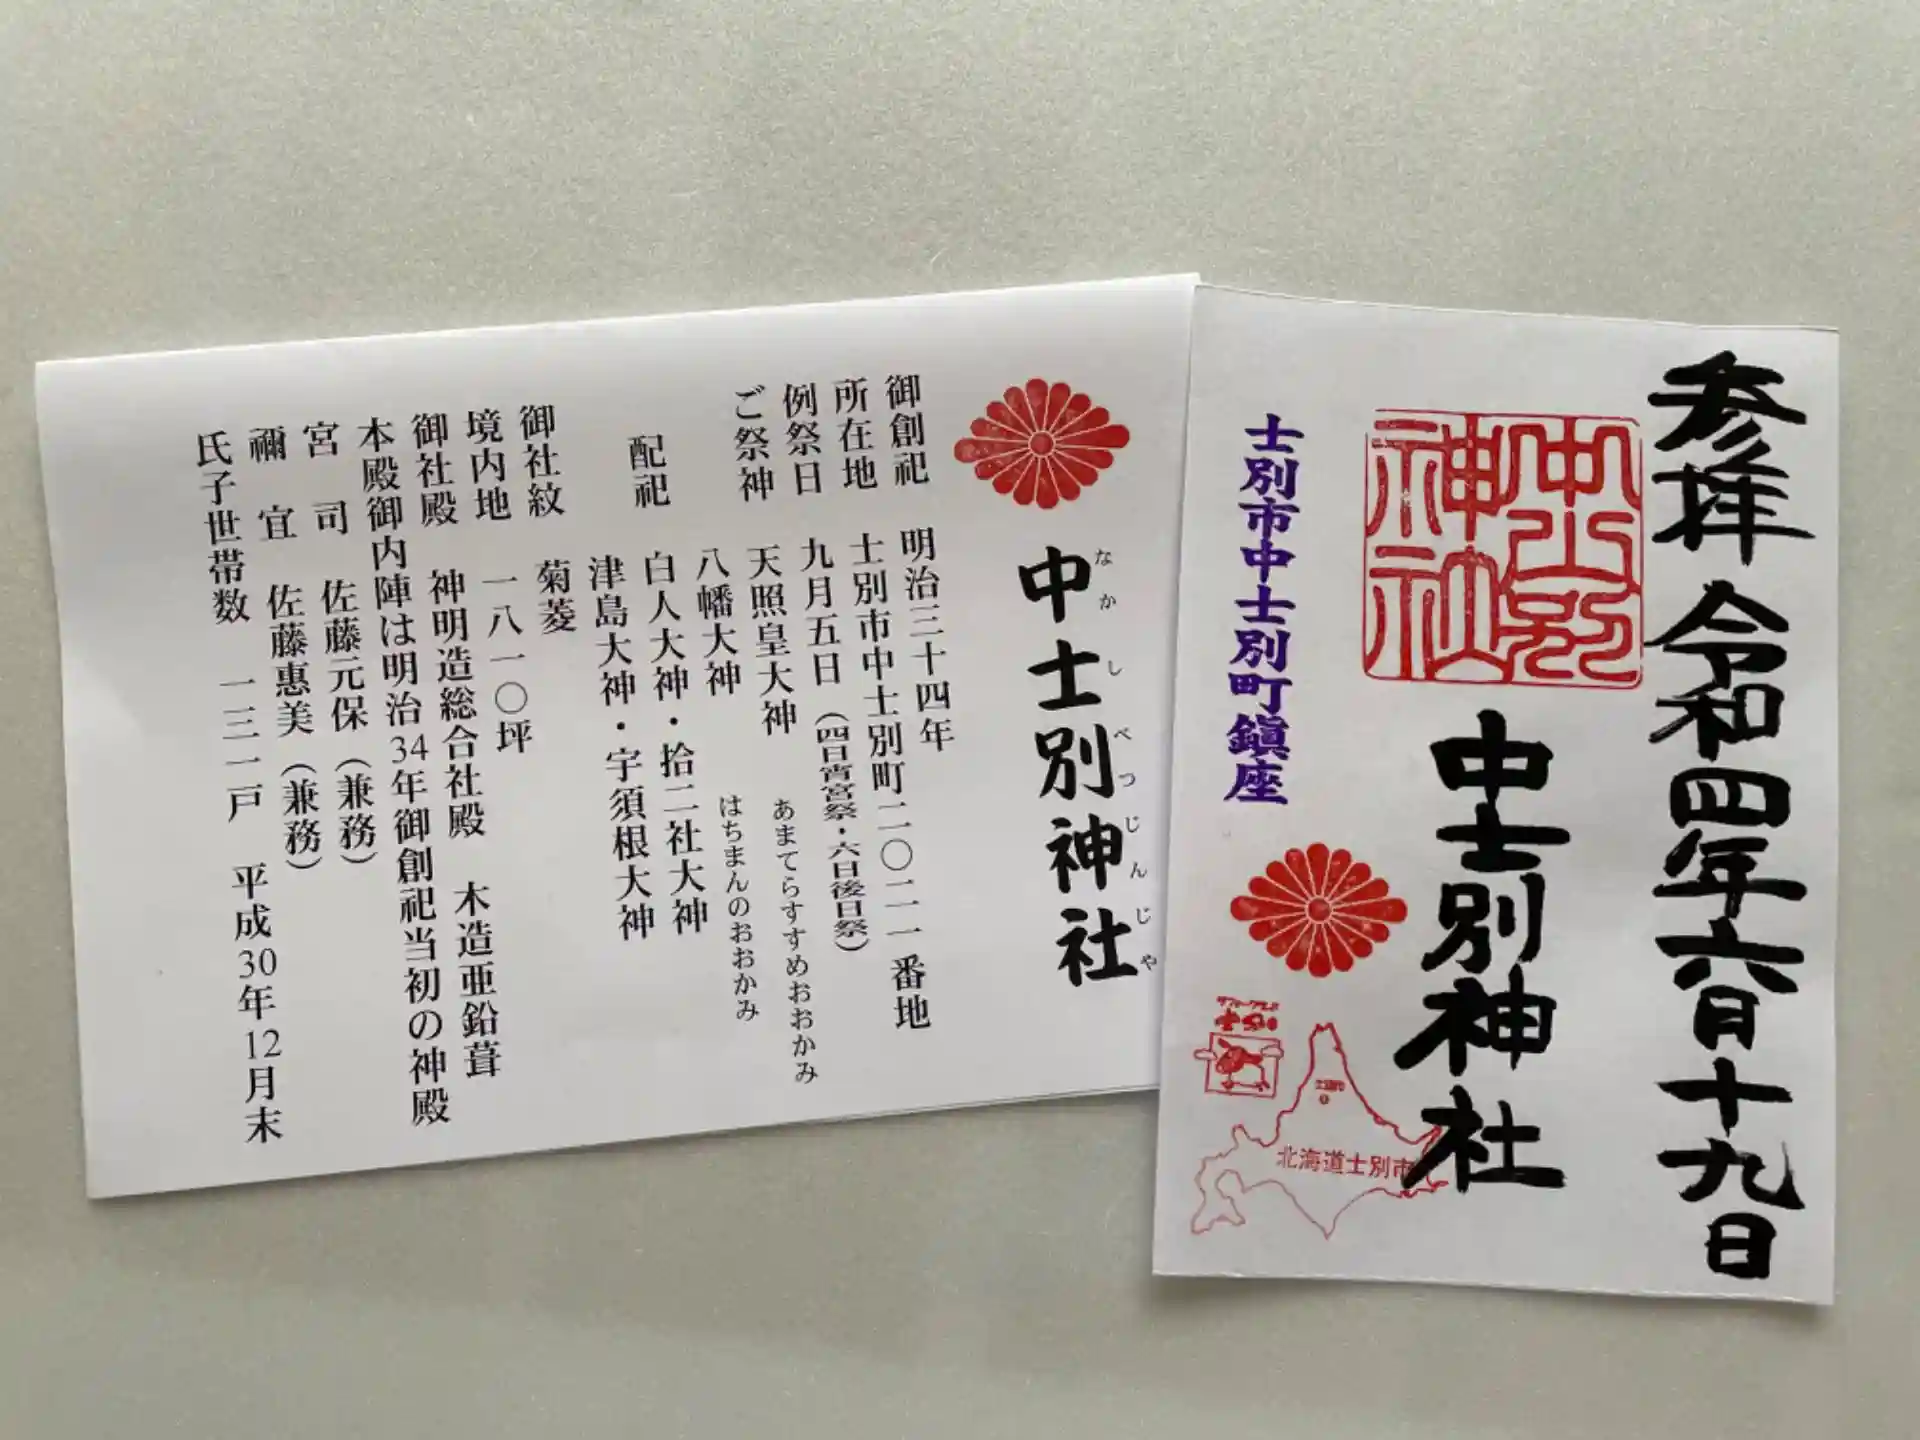 参拝 令和四年六月十九日
中士別
神社
中士別神社
士別市中士別町鎭座
北海道士別市
中士別神社
なかしべつじんじゃ
御創祀 明治三十四年
所在地 士別市中士別町二〇二一番地
例祭日 九月五日（四日宵宮祭・六日後日祭）
ご祭神 天照皇大神 あまてらすすめおおかみ
八幡大神 はちまんのおおかみ
配祀 白人大神・拾二社大神
津島大神・宇須根大神
御社紋 菊菱
境内地 一八一〇坪
御社殿 神明造総合社殿 木造亜鉛葺
本殿御内陣は明治34年御創祀当初の神殿
宮司 佐藤元保（兼務）
禰宜 佐藤惠美（兼務）
氏子世帯数 一三一戸 平成30年12月末